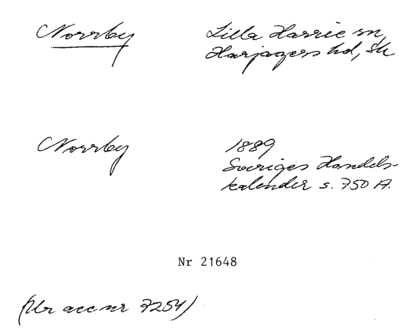 Norrby Lilla Harrie sn,
Harjagers hd, Sk
Norrby 1889
Sveriges Handels-
kalender s. 750 A.
Nr 21648
(Ur acc nr 7254)